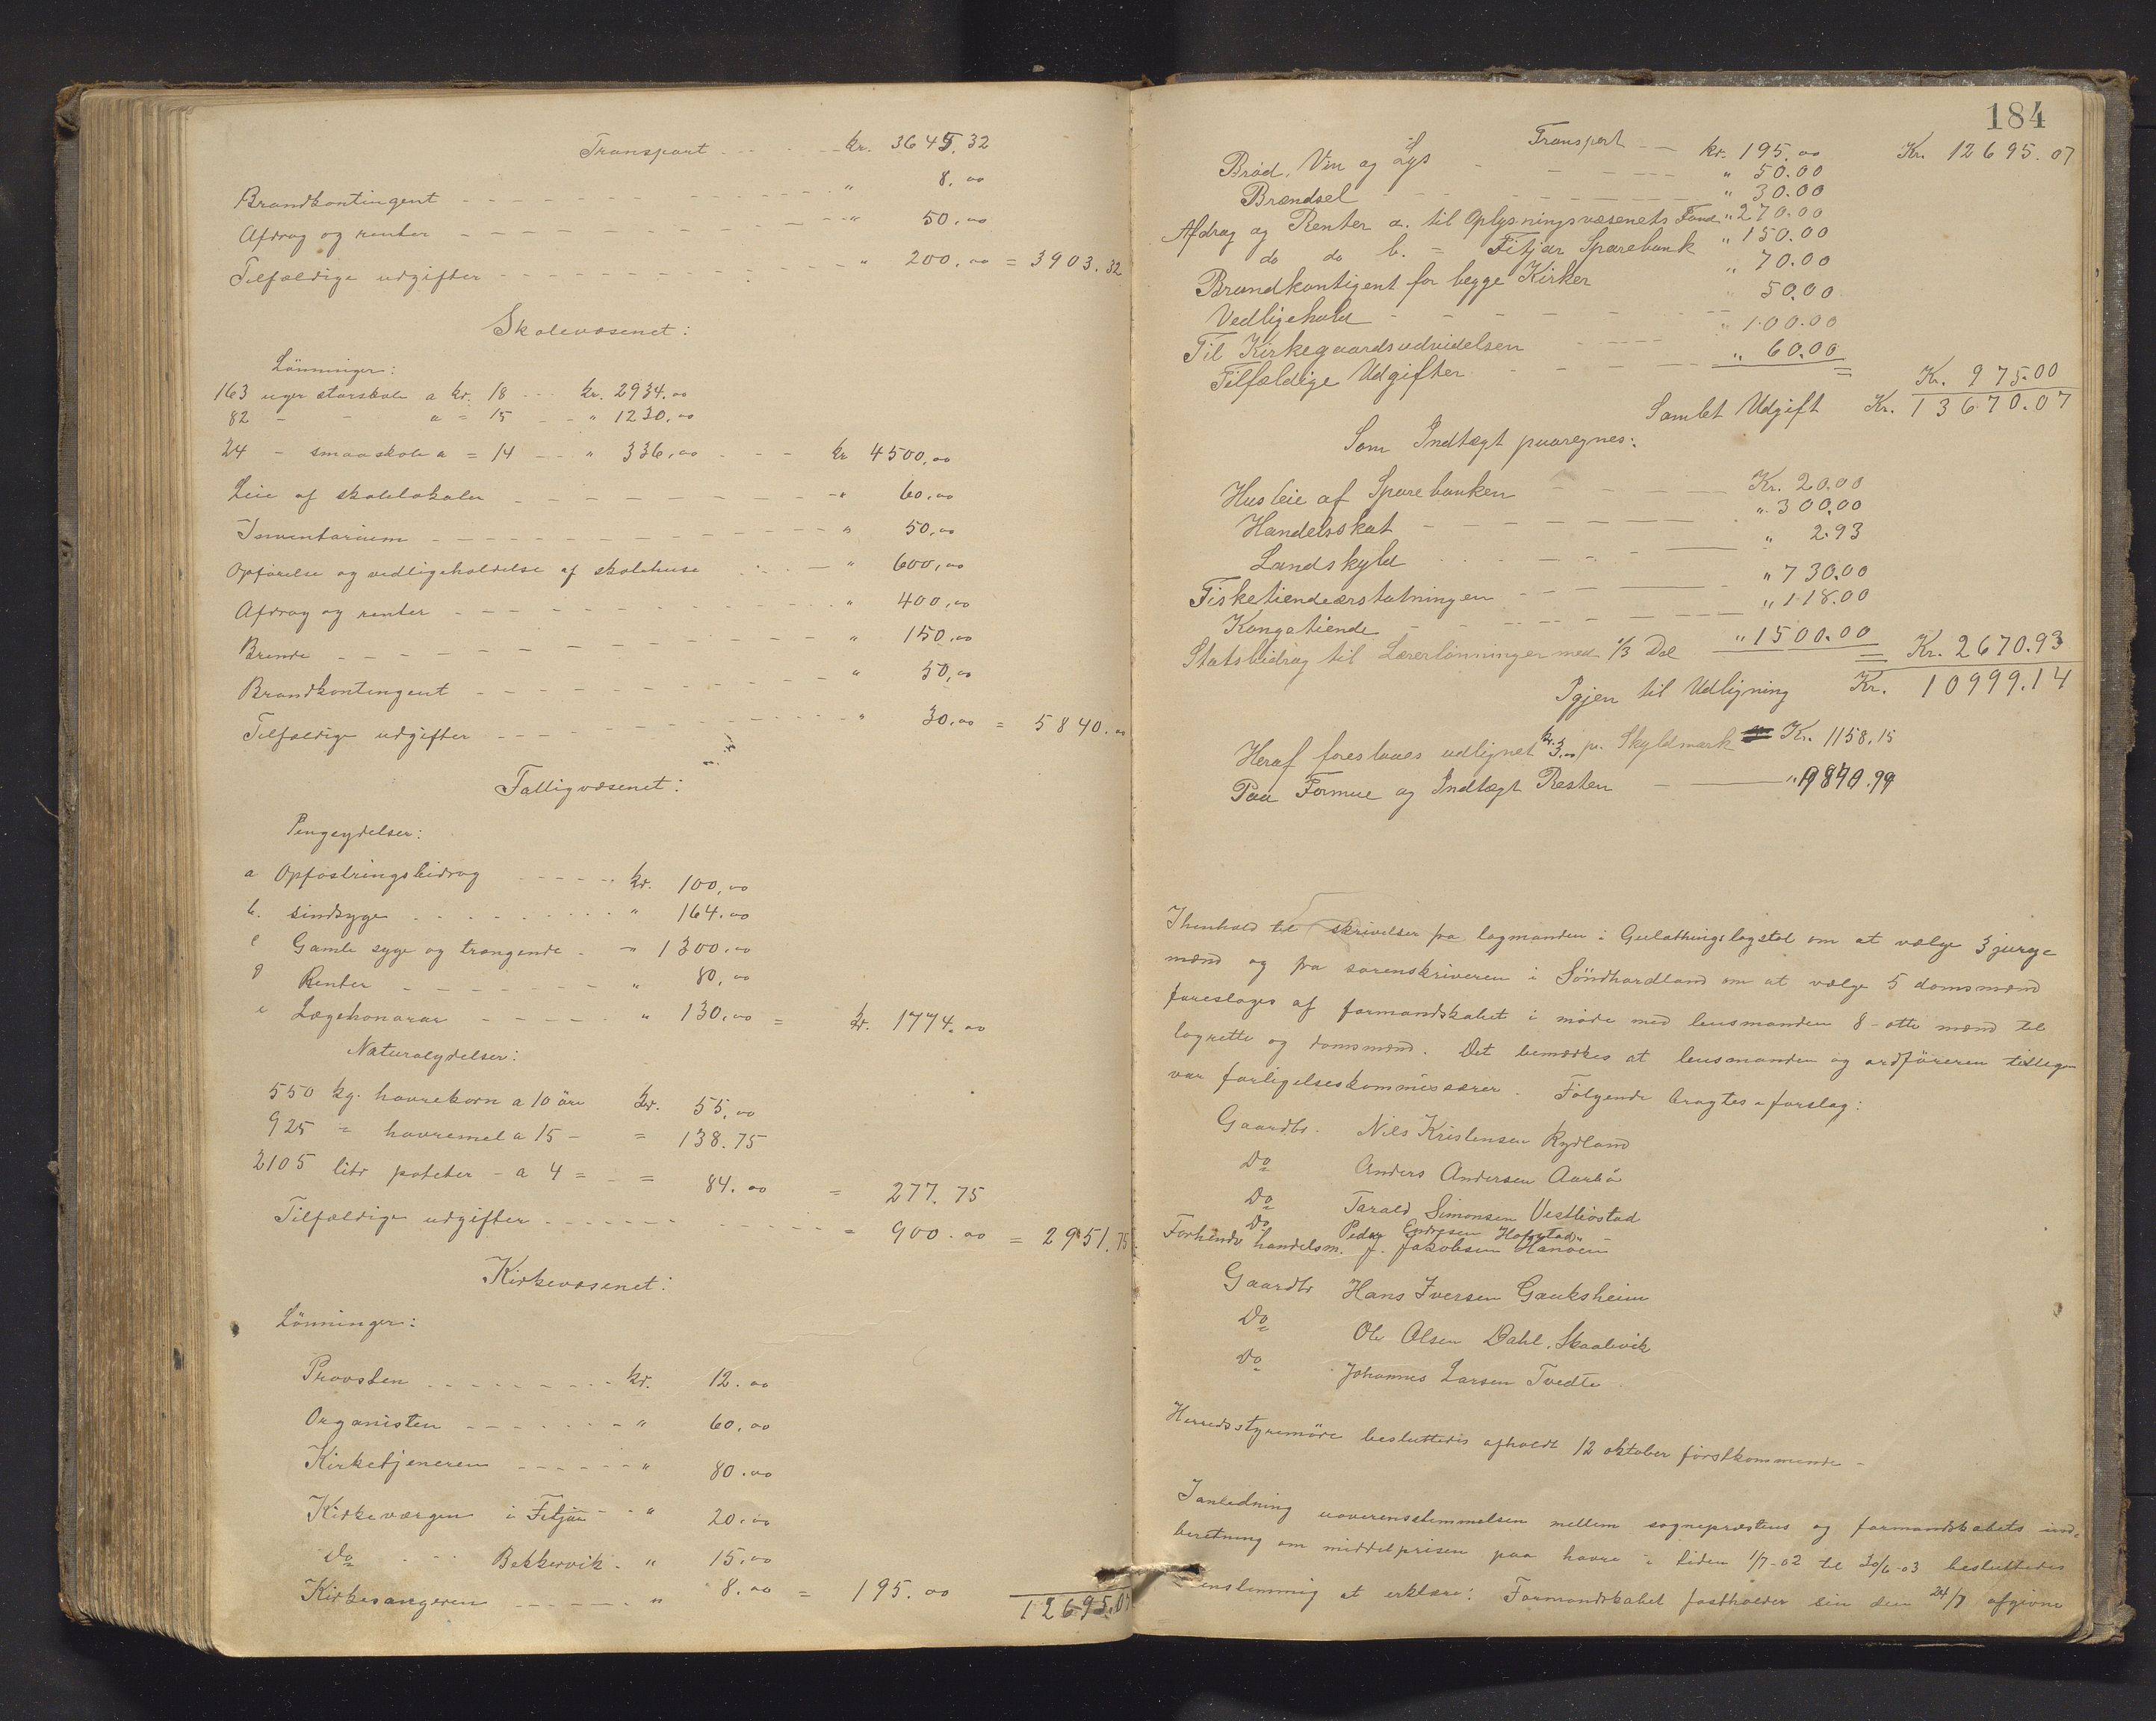 Transport - - - - kr. 3645,32
Brandkontingent - - - " 8,00
Afdrag og renter - - - " 50,00
Tilfældige udgifter - - - " 200,00 = 3903,32
Skolevæsenet:
Lönninger:
163 uger storskole a kr. 18 - - kr. 2934,00
82 - - a = 15 - - " 1230,00
24 - smaaskole a = 14 - - " 336,00 - - - kr 4500,00
Leie af skolelokaler - - - " 60,00
Inventarium - - - " 50,00
Opförelse og vedligeholdelse af skolehuse - - - " 600,00
Afdrag og renter - - - " 400,00
Brende - - - " 150,00
Brandkontingent - - - " 50,00
Tilfældige udgifter - - - " 30,00 = 5840,00
Fattigvæsenet:
Pengeydelser:
a Opfostringsbidrag - - - kr. 100,00
b. sindsyge - - - " 164,00
c Gamle syge og trængende - " 1300,00
d Renter - - - " 80,00
e Lægehonorar - - - " 130,00 = kr. 1774,00
Naturalydelser:
550 kg. havrekorn a 10 öre kr. 55,00
925 = havremel a 15 - = 138.75
2105 litr poteter - a 4 = - = 84.00 = 277.75
Tilfældige udgifter - - - = 900.00 = 2951,75
Kirkevæsenet:
Lönninger:
Provsten - - - kr. 12.00
Organisten - - - " 60,00
Kirketjeneren - - - " 80.00
Kirkeværgen i Fitjar - - " 20.00
Do - - Bekkervik - " 15,00
Kirkesangeren - - - " 8.00 = 195.00 12695,07
184
Transport - - kr. 195.00 Kr. 12695.07
Bröd, Vin og Lys - - - " 50.00
Brændsel - - - " 30.00
Afdrag og Renter a. til Oplysningsvæsenets Fond " 270.00
do do b. = Fitjar Sparebank " 150.00
Brandkontigent for begge Kirker " 70.00
Vedligehold - - - " 50.00
Til Kirkegaardsudvidelsen - - - " 100.00
Tilfældige Udgifter - - - " 60.00 = Kr. 975.00
Samlet Udgift Kr. 13670.07
Som Indtægt paaregnes:
Husleie af Sparebanken - - - Kr. 20.00
Handelsskat - - - " 300.00
Landskyld - - - " 2.93
Fisketiendeerstatningen - - - " 730.00
Kongetiende - - - " 118.00
Statsbidrag til Lærerlönninger med 1/3 Del " 1500.00 = Kr. 2670.93
Igjen til Udligning Kr. 10999.14
Heraf foreslaaes udlignet kr. 3,00 pr. Skyldmark Kr. 1158,15
Paa Formue og Indtægt Resten - - " 9840.99
Ihenhold til skrivelser fra lagmanden i Gulathings lagstol om at vælge 3 jurye
mænd og fra sorenskriveren i Söndhordland om at vælge 5 domsmænd
foreslages af formandskabet i möde med lensmanden 8 - otte mænd til
lagrette og domsmænd. Det bemærkes at lensmanden og ordföreren tillige
var forligelseskommissærer. Fölgende bragtes i forslag:
Gaardbr. Nils Kristensen Rydland
Do Anders Andersen Aarbö
Do Tarald Simonsen Vestböstad
Do Peder Endresen Hofstad
Forhendv handelsm. J. Jakobsen Hanöen
Gaardbr Hans Iversen Gauksheim
Do Ole Olsen Dahl, Skaalevik
Do Johannes Larsen Tvedte
Herredsstyremöde besluttedes afholdt 12 oktober förstkommende -
I anledning uoverensstemmelsen mellem sognepræstens og formandskabets ind-
beretning om middelprisen paa havre i tiden 1/7-02 til 30/6-03 besluttedes
enstemmig at erklære: Formandskabet fastholder sin den 24/7 afgivne